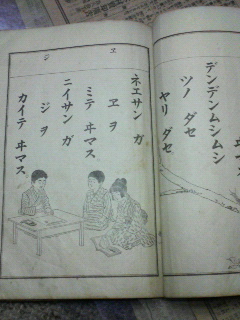 デンデンムシムシ
ツノ ダセ
ヤリ ダセ
ヱ
ジ
ネエサン ガ
ヱ ヲ
ミテ ヰマス
ニイサン ガ
ジ ヲ
カイテ ヰマス